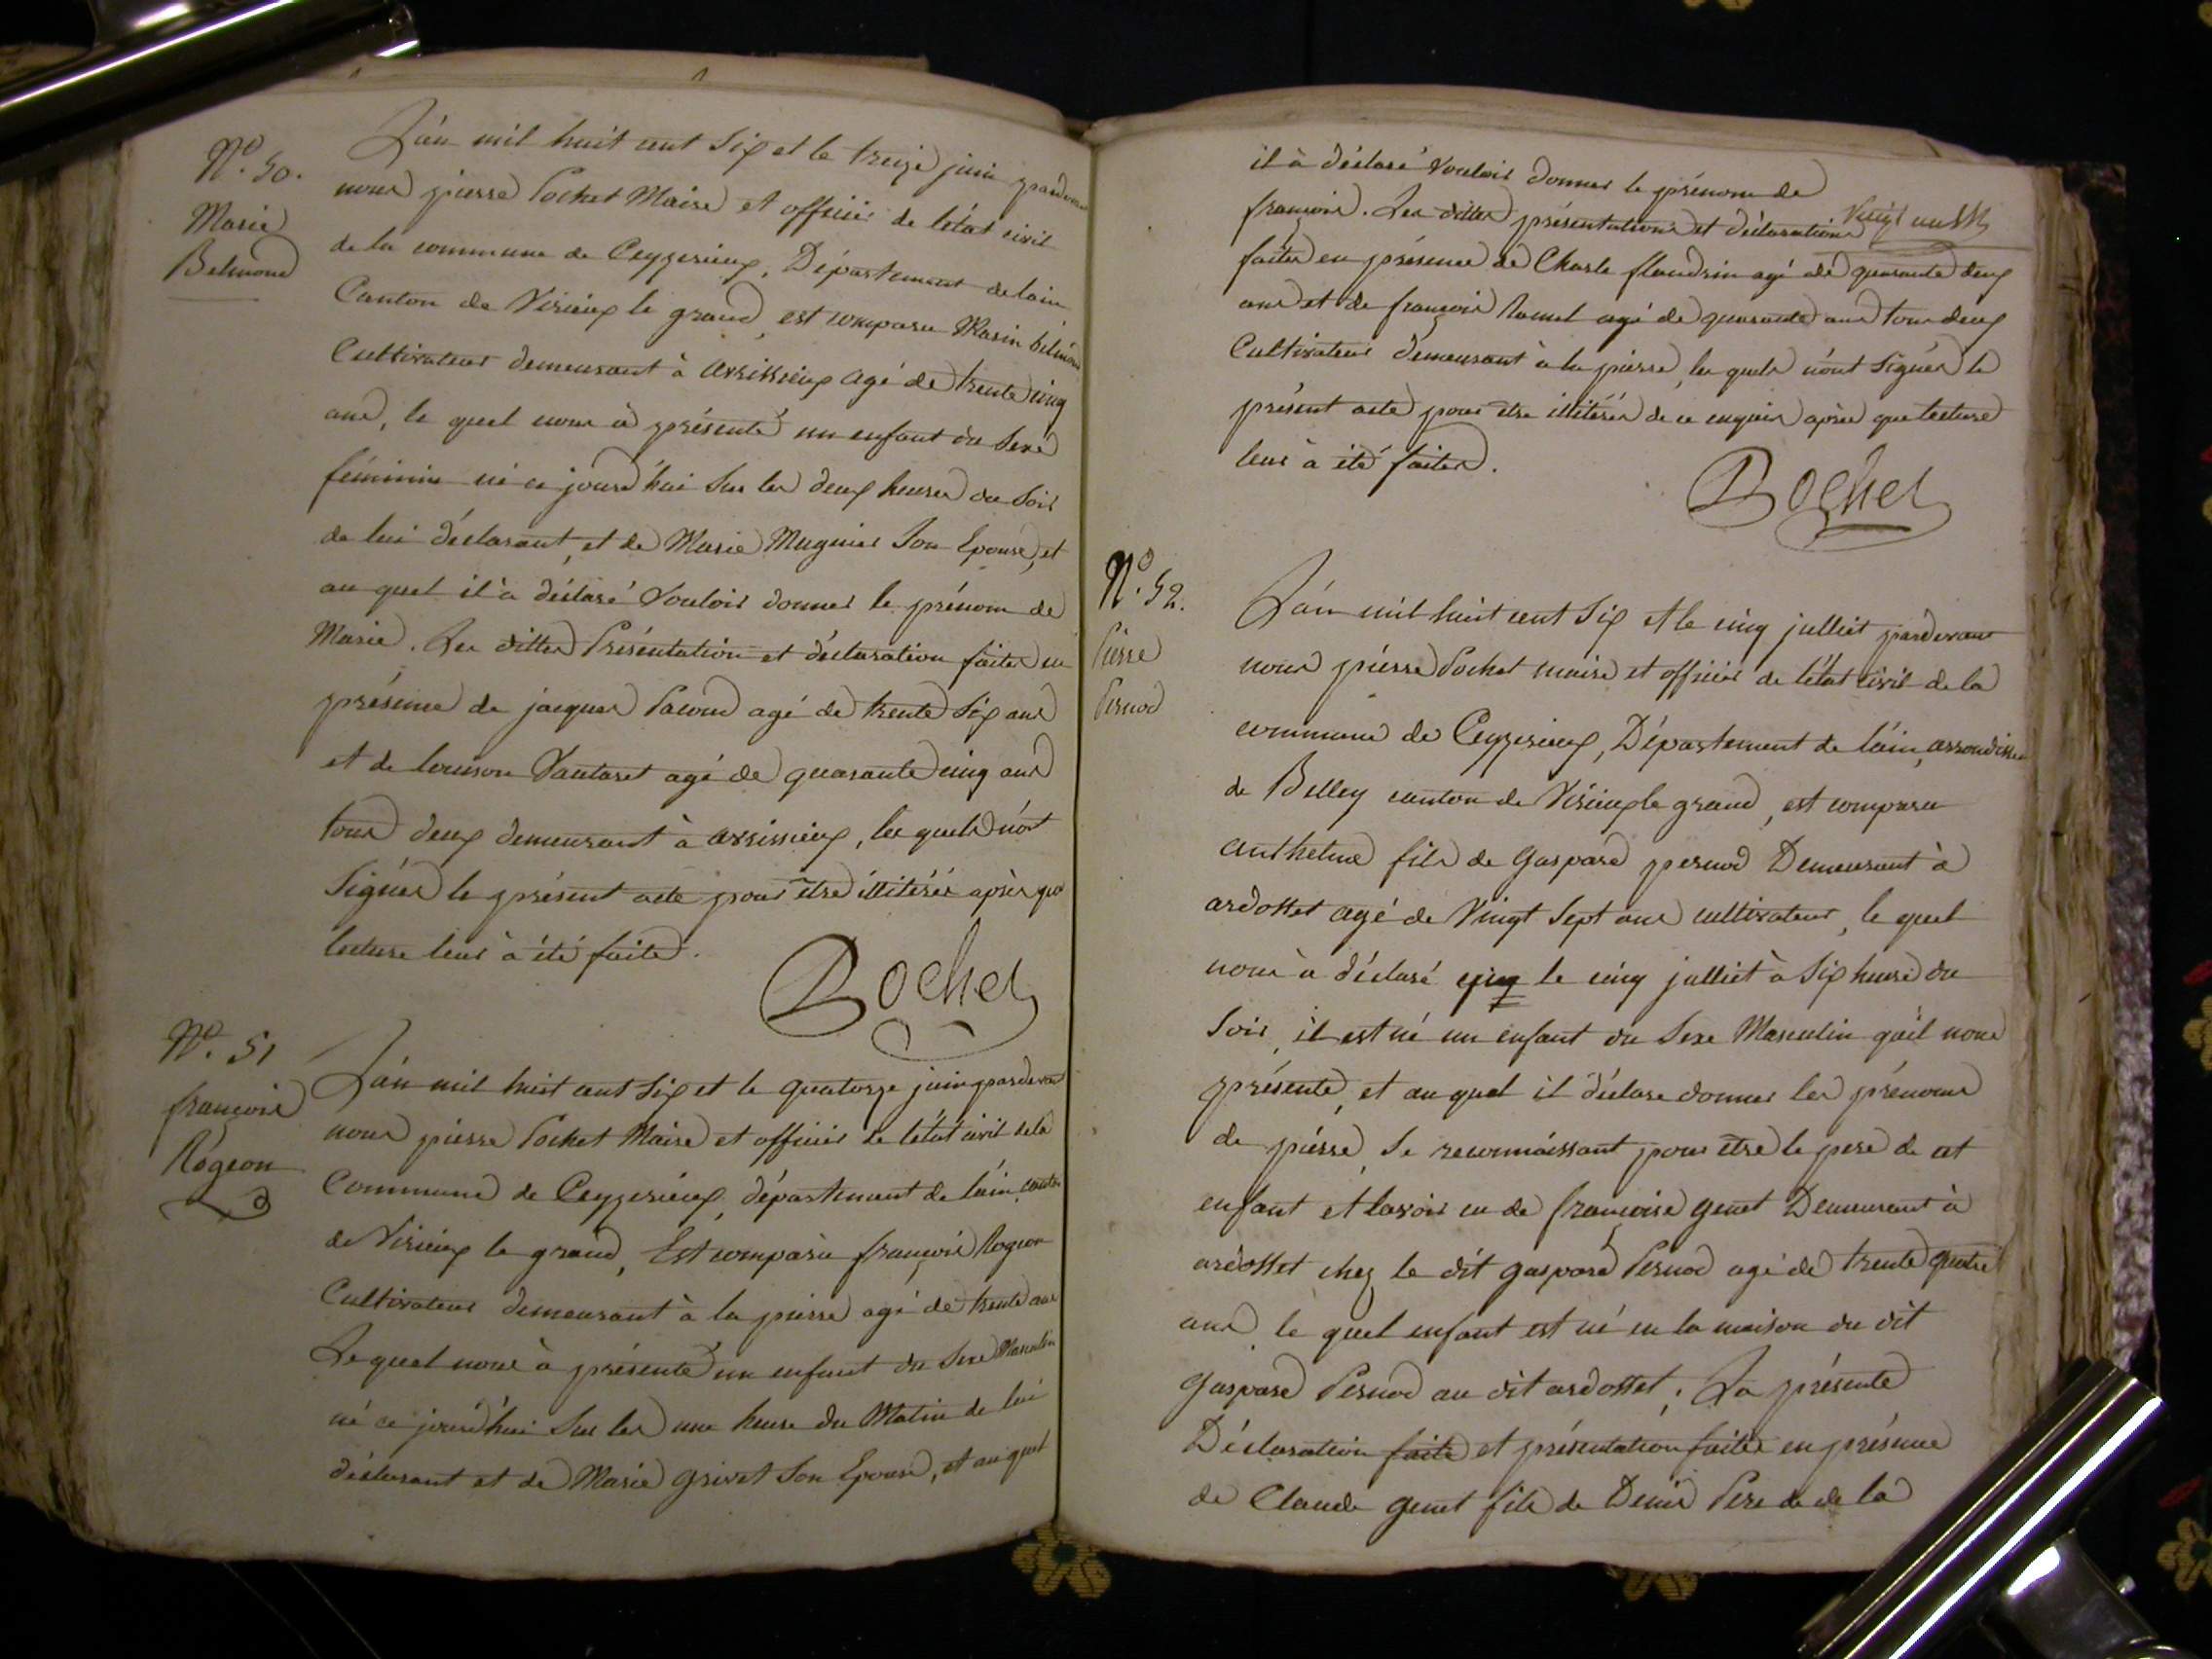 N.o 50.
Marie
Belmond
L'an mil huit cent Six et le treize juin pardevant
nous pierre Pochet Maire et officier de l'état civil
de la commune de Ceyzerieux, Département de lain
Canton de Virieux le grand, est comparu Marin belmond
Cultivateur demeurant à avrissieux agé de trente cinq
ans, le quel nous à présenté un enfant du Sexe
féminin né ce jourd'hui Sur les deux heures du Soir
de lui déclarant, et de Marie Mugnier Son Epouse, et
au quel il à déclaré Vouloir donner le prénom de
Marie. Les dittes Présentation et déclaration faites en
présence de jacques Pacoud agé de trente Six ans
et de Vantaret agé de quarante cinq ans
tous deux demeurant à avrissieux, les quels n'ont
Signér le présent acte pour être illitérés après que
lecture leur à été faite.
Pochet
N.o 51
françois
Rogeon
L'an mil huit cent Six et le quatorze juin pardevant
nous pierre Pochet Maire et officier de l'état civil de la
Commune de Ceyzerieux, département de l'ain, canton
de Virieux le grand, Est comparu françois Rogeon
Cultivateur demeurant à la pierre agé de trente ans
Le quel nous à présenté un enfant du Sexe Masculin
né ce jourd'hui Sur les une heure du Matin de lui
déclarant et de Marie grivet Son Epouse, et au quel
il à déclaré Vouloir donner le prénom de
françois. Les dittes présentation et déclaration
faites en présence de Charle flandrin agé de quarante deux
ans et de françois agé de quarante ans tous deux
Cultivateur demeurant à la pierre, les quels n'ont Signér le
présent acte pour être illitérés de ce enquis après que lecture
leur à été faites.
Pochet
N.o 52.
Pierre
Pernod
L'an mil huit cent Six et le cinq julliet pardevant
nous pierre Pochet maire et officier de l'état civil de la
commune de Ceyzerieux, Département de l'ain, arrondissem
de Belley canton de Virieux le grand, est comparu
anthelme fils de Gaspard pernod Demeurant à
ardosset agé de Vingt Sept ans cultivateur, le quel
nous à déclaré que le cinq julliet à Six heure du
Soir, il est né un enfant du Sexe Masculin qu'il nous
présente, et au quel il déclare donner les prénoms
de pierre, Se reconnaissant pour être le pere de cet
enfant et lavoir eu de françoise genet Demeurant à
ardosset chez le dit gaspard Pernod agé de trente quatre
ans le quel enfant est né en la maison du dit
Gaspard Pernod au dit ardosset; La présente
Déclaration faite et présentation faites en présence
de Claude genet fils de Denis Pere de de la